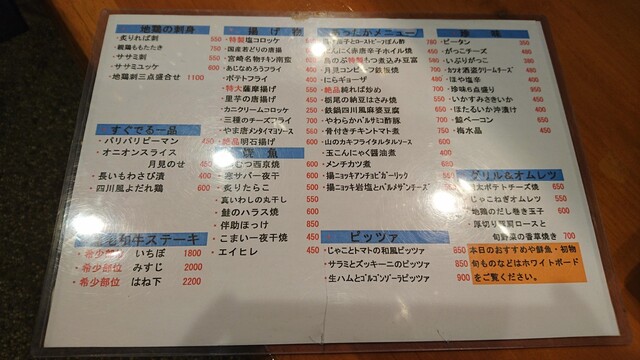 地鶏の刺身
・炙りれば刺 550
・親鶏ももたたき 750
・ササミ刺 550
・ササミユッケ 600
・地鶏刺三点盛合せ 1100
すぐでる一品
・パリパリピーマン
・オニオンスライス
月見のせ 450
・長いもわさび漬 400
・四川風よだれ鶏 600
和牛ステーキ
・希少部位 いちぼ 1800
・希少部位 みすじ 2000
・希少部位 はね下 2200
・特製塩コロッケ
・国産若どりの唐揚
・宮崎名物チキン南蛮
・あじなめろうフライ
・ポテトフライ
・特大薩摩揚げ 550
・里芋の唐揚げ 450
・カニクリームコロッケ 250
・三種のチーズフライ 700
・やま唐メンタイマヨソース 550
・絶品明石揚げ 600
西京焼
サバ一夜干
・炙りたらこ 500
・真いわしの丸干し 550
・鮭のハラス焼 600
・伴助ほっけ 800
・こまい一夜干焼 450
・エイヒレ 450
メニュー
・にんにく赤唐辛子ホイル焼 450
特製もつ煮込み豆富 580
・月見コンビーフ鉄板焼 750
・にらギョーザ 490
・絶品純れば炒め 700
・栃尾の納豆はさみ焼 550
・鉄鍋四川風麻婆豆腐 650
・やわらかハルサミ酢豚 700
・骨付きチキントマト煮 750
・山のカキフライタルタルソース 600
・玉こんにゃく醤油煮 400
・メンチカツ煮
・揚ニョッキアンチョビガーリック
・揚ニョッキ岩塩とパルメザンチーズ
ピッツァ
・じゃことトマトの和風ピッツァ 850
・サラミとズッキーニのピッツァ 850
・生ハムとゴルゴンゾーラピッツァ 900
珍味
・ピータン 300
・がっこチーズ 450
・いぶりがっこ 380
・カツオ酒盗クリームチーズ 490
・ほや塩辛 490
・珍味6点盛り
・いかすみさきいか 450
・ほたるいか沖漬け 400
・鯨ベーコン 650
・梅水晶 450
グリル&オムレツ
太ポテトチーズ焼 650
・じゃこねぎオムレツ 550
・地鶏のだし巻き玉子 600
・厚切り
旬野菜の香草焼き 700
本日のおすすめや鮮魚・初物
旬ものなどはホワイトボード
をご覧ください。